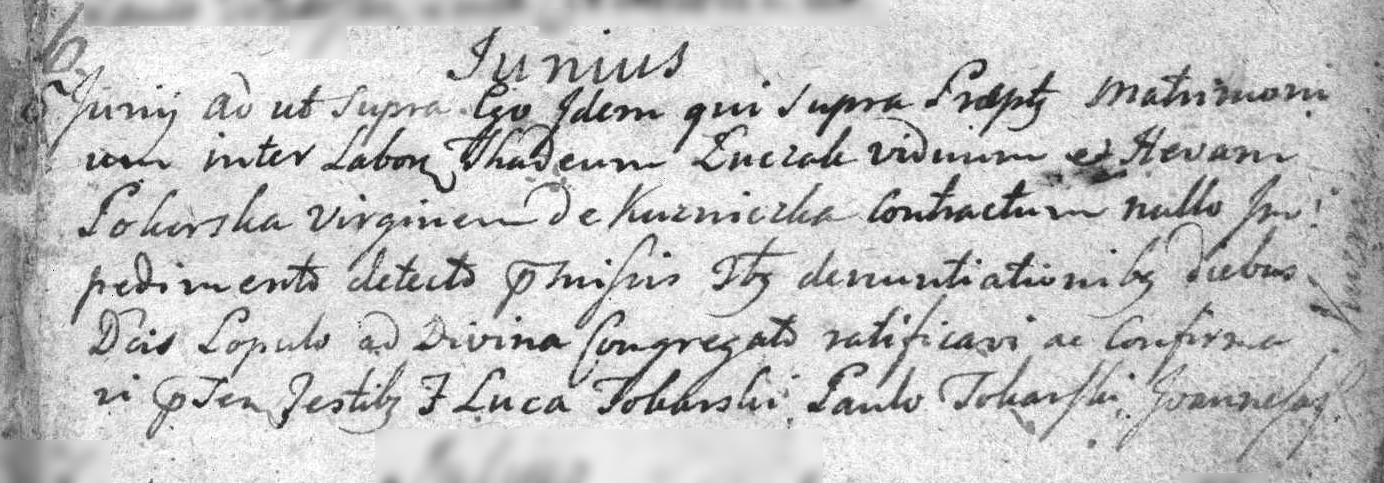 Junius
6 Junij ad ut supra Ego Idem qui supra Præptz Matrimoni
um inter Labor Thadeum Zuczak viduum et Hevam
Tokarska virginem de Kuzniczka Contractum nullo Im
pedimento detecto pmissis Ttbz denuntiationibz diebus
Dcis Populo ad Divina Congregato ratificavi ac Confirma
vi pten Testibz F Luca Tokarski Paulo Tokarski